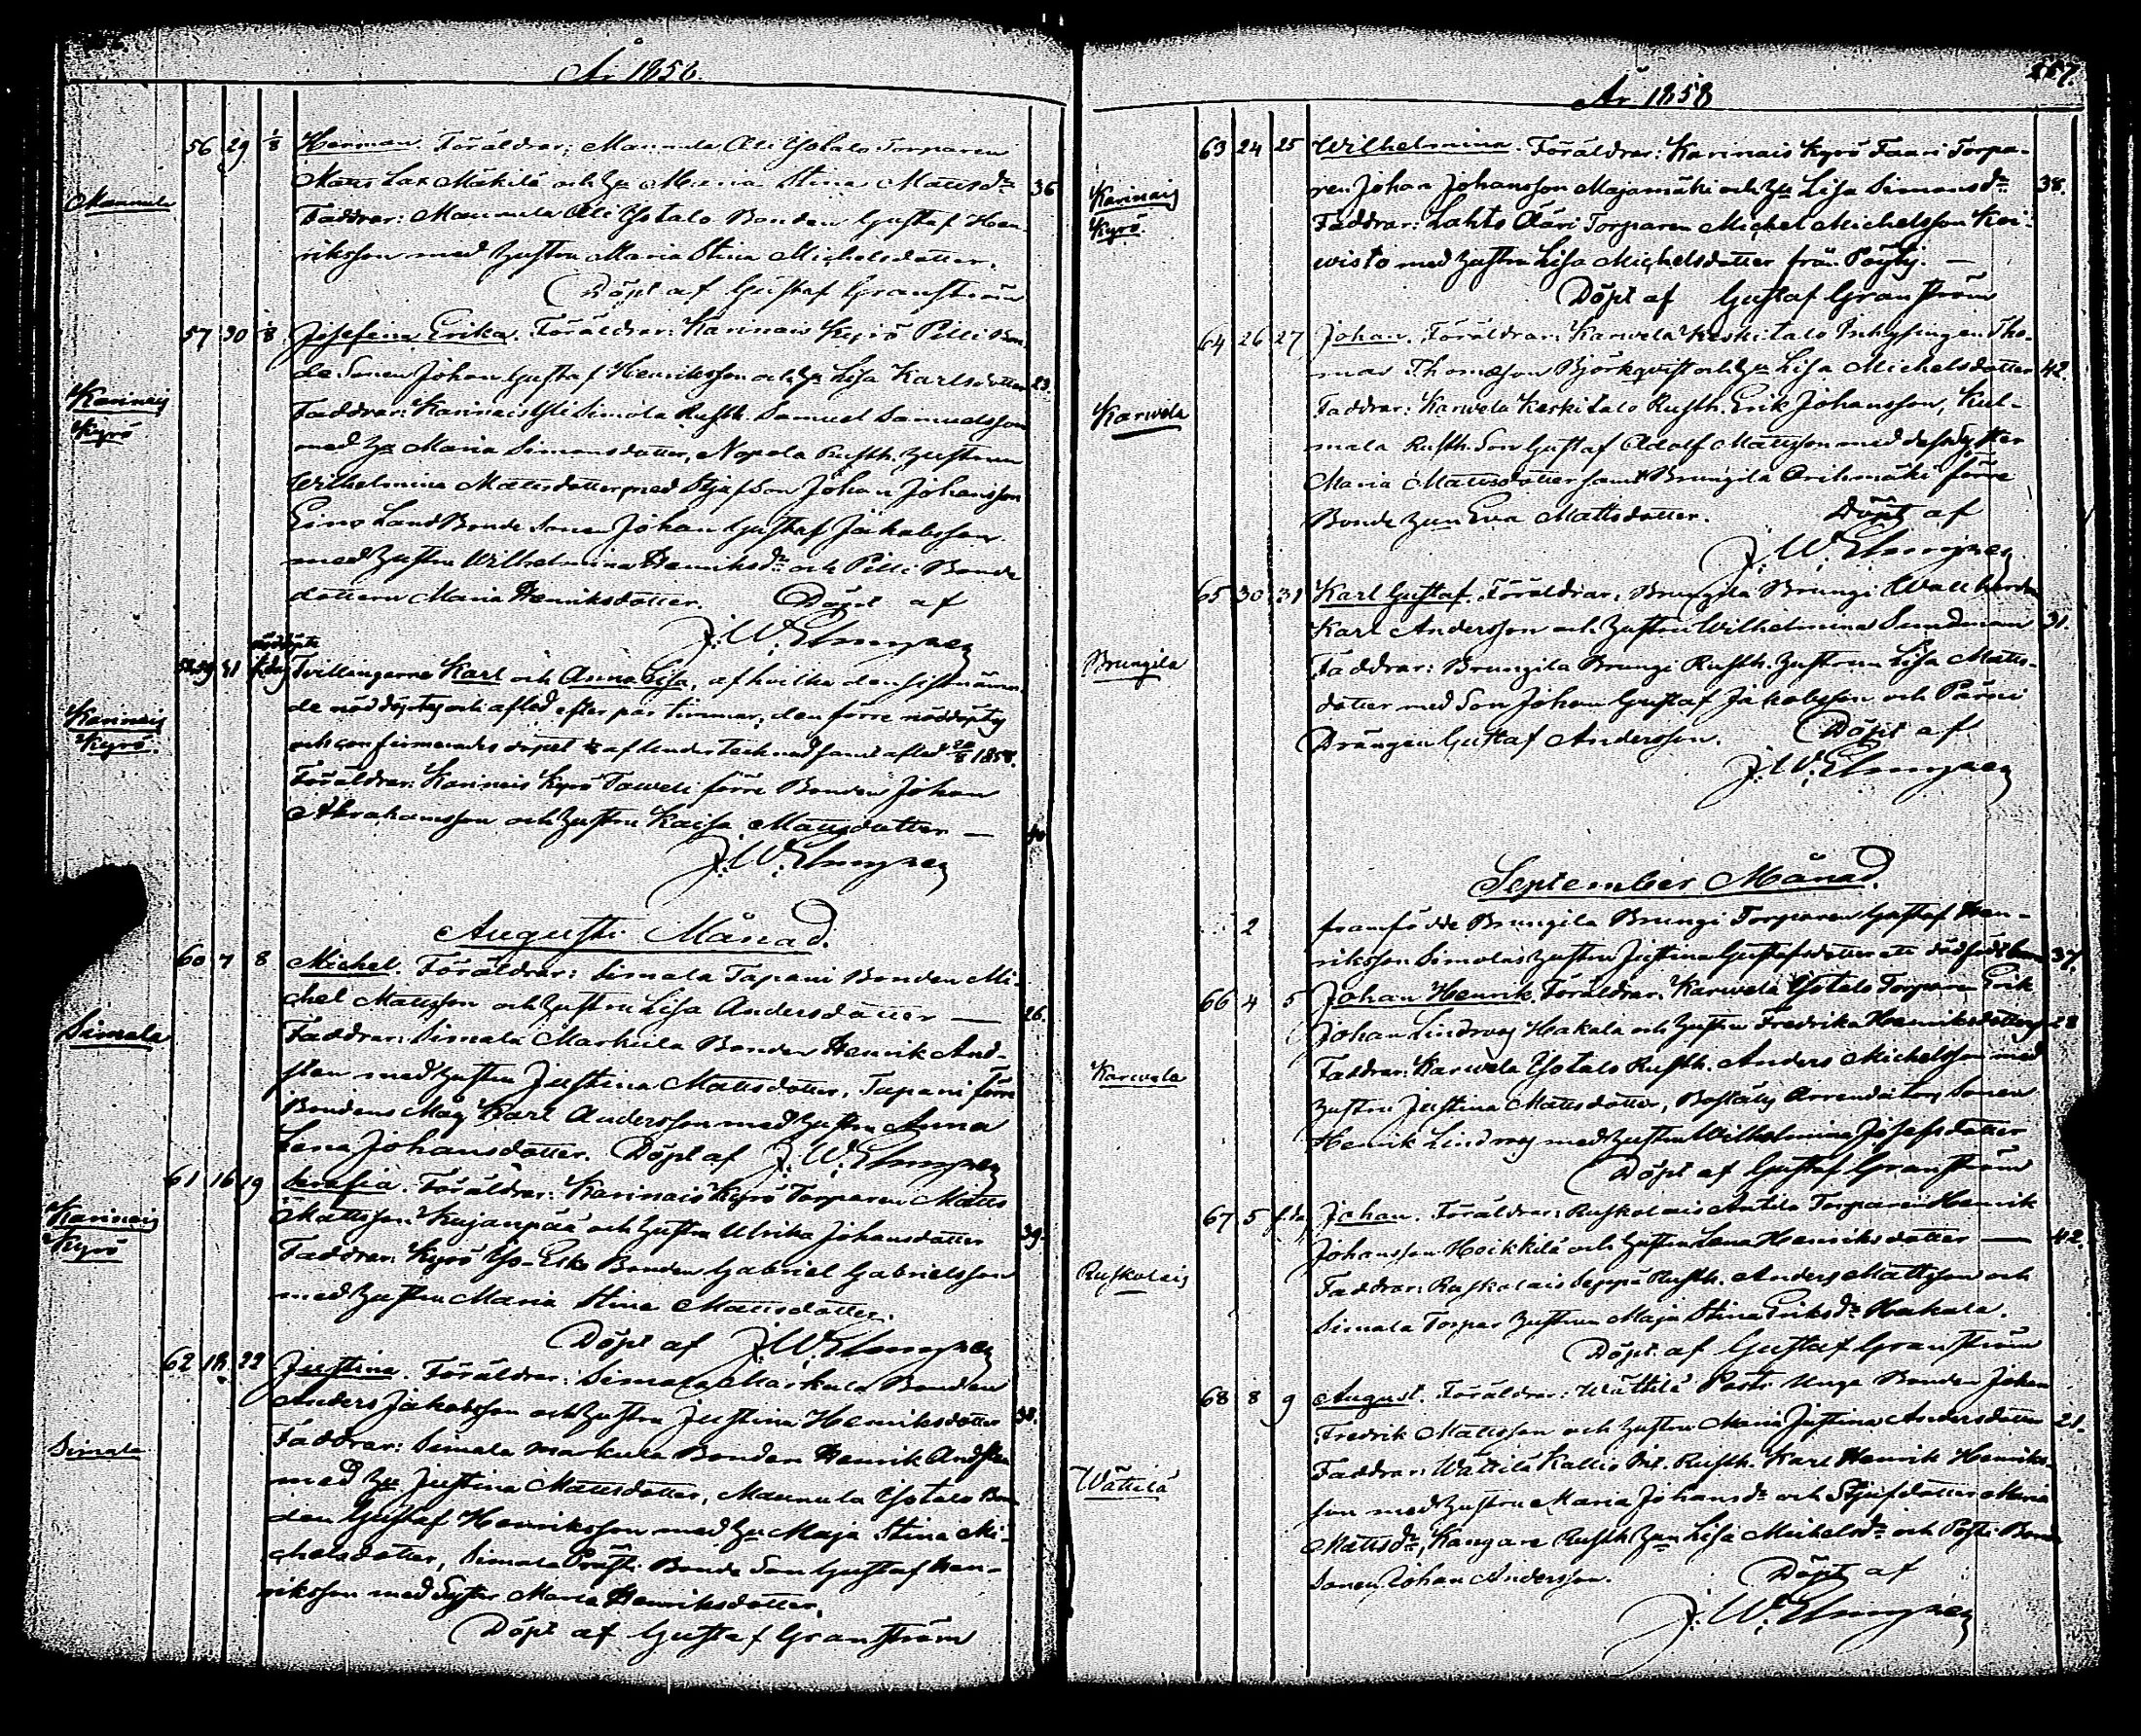 År 1858.
Maunula
56 29 1/8 Herman. Föräldrar: Maunula Ali Ystalo Torparen
Matts Lax Mäkilä och Hu Maria Stina Mattsdr 36
Faddrar: Maunula Ali Ystalo Bonden Gustaf Hen-
riksson med hustru Maria Stina Michelsdotter.
Döpt af Gustaf Granström
Karinais
Kyrö
57 30 1/8 Josefina Erika. Föräldrar: Karinais Kyrö Pilli Bon-
de Sonen Johan Gustaf Henriksson och Hu Lisa Karlsdotter 23.
Faddrar: Karinais Yli Simola Rusth. Samuel Samuelsson
med Hu Maria Simonsdotter, Nopola Rusth. hustrun
Wilhelmina Mattsdotter med Stjufson Johan Johansson
Eino Land Bonde Sonen Johan Gustaf Jakobsson
med hustru Wilhelmina Henriksdr och Pilli Bonde
dottern Maria Henriksdotter. Döpt af
J. W. Elmgren
Karinais
Kyrö.
nöddöpte
58. 59 31 f.dag Tvillingarne Karl och Anna Lisa, af hvilka den sistnämn-
de nöddöptes och afled efter par timmar; den förre nöddöptes
och confirmerades dopet af undertecknad samt afled 1858.
Föräldrar: Karinais Kyrö Taweli förre Bonden Johan
Abrahamsson och hustru Kaisa Mattsdotter — 40
J. W. Elmgren
Augusti Månad.
Simala
60 7 8 Michel. Föräldrar: Simala Tapani Bonden Mi-
chel Mattsson och hustru Lisa Andersdotter — 26.
Faddrar: Simala Markula Bonden Henrik And-
sten med hustru Justina Mattsdotter, Tapani förre
Bondens Måg Karl Andersson med hustru Anna
Lena Johansdotter. Döpt af J. W. Elmgren
Karinais
Kyrö
61 16 19 Serafia. Föräldrar: Karinais Kyrö Torparen Matts
Mattsson Kujanpää och hustru Ulrika Johansdotter 39.
Faddrar: Kyrö Yso-Eska Bonden Gabriel Gabrielsson
med hustru Maria Stina Mattsdotter.
Döpt af J. W. Elmgren
Simala
62 18. 22 Justina. Föräldrar: Simala Markula Bonden
Anders Jakobsson och hustru Justina Henriksdotter 38.
Faddrar: Simala Markula Bonden Henrik Andsten
med Hu Justina Mattsdotter, Maunula Ystalo Bon-
den Gustaf Henriksson med Hu Maja Stina Mi-
chelsdotter, Simala Prusti Bonde Son Gustaf Hen-
riksson med Syster Maria Henriksdotter.
Döpt af Gustaf Granström
227.
År 1858
Karinais
Kyrö
63 24 25 Wilhelmina. Föräldrar: Karinais Kyrö Faari Torpa-
ren Johan Johansson Majamäki och Hu Lisa Simonsdr 38.
Faddrar: Lahto Ääri Torparen Michel Michelsson Koi-
wisto med hustru Lisa Michelsdotter från Pöyty. —
Döpt af Gustaf Granström
Karwela
64 26 27 Johan. Föräldrar: Karwela Keskitalo Inhysingen Tho-
mas Thomasson Björkqvist och Hu Lisa Michelsdotter 42.
Faddrar: Karwela Keskitalo Rusth. Erik Johansson, Kul-
mala Rusth. Son Gustaf Adolf Mattsson med dess Syster
Maria Mattsdotter samt Brungila Orihmäki förre
Bonde Hun Eva Mattsdotter. Döpt af
J. W. Elmgren
Brungila
65 30 31 Karl Gustaf. Föräldrar: Brungila Brungi Wallherden
Karl Andersson och hustru Wilhelmina Sundman 31.
Faddrar: Brungila Brungi Rusth. hustrun Lisa Matts-
dotter med Son Johan Gustaf Jakobsson och Pärni
Drängen Gustaf Andersson. Döpt af
J. W. Elmgren
September Månad.
2 framfödde Brungila Brungi Torparen Gustaf Hen-
riksson Simolas hustru Justina Gustafsdotter ett dödfödt barn 37.
Karwela
66 4 5 Johan Henrik. Föräldrar: Karwela Ystalo Torparen Erik
Johan Lindroos Hakala och hustru Fredrika Henriksdotter 28
Faddrar: Karwela Ystalo Rusth. Anders Michelsson med
hustru Justina Mattsdotter, Boställs Arrendators Sonen
Henrik Lindroos med hustru Wilhelmina Josefsdotter
Döpt af Gustaf Granström
Ruskolais
67 5 f.dag Johan. Föräldrar: Ruskolais Antila Torparen Henrik
Johansson Hoikkilä och hustru Lena Henriksdotter — 42.
Faddrar: Ruskolais Seppä Rusth. Anders Mattsson och
Simala Torpar hustrun Maja Stina Eriksdr Hakala.
Döpt af Gustaf Granström
Wättilä
68 8 9 August. Föräldrar: Wättilä Posti Unga Bonden Johan
Fredrik Mattsson och hustru Maria Justina Andersdotter 21.
Faddrar: Wättilä Kallio Rusth. Karl Henrik Henriks-
son med hustru Maria Johansdr och Stjufdotter Maria
Mattsdr, Kangare Rusth Hun Lisa Michelsdr och Posti Bonde
Sonen Johan Andersson. Döpt af
J. W. Elmgren